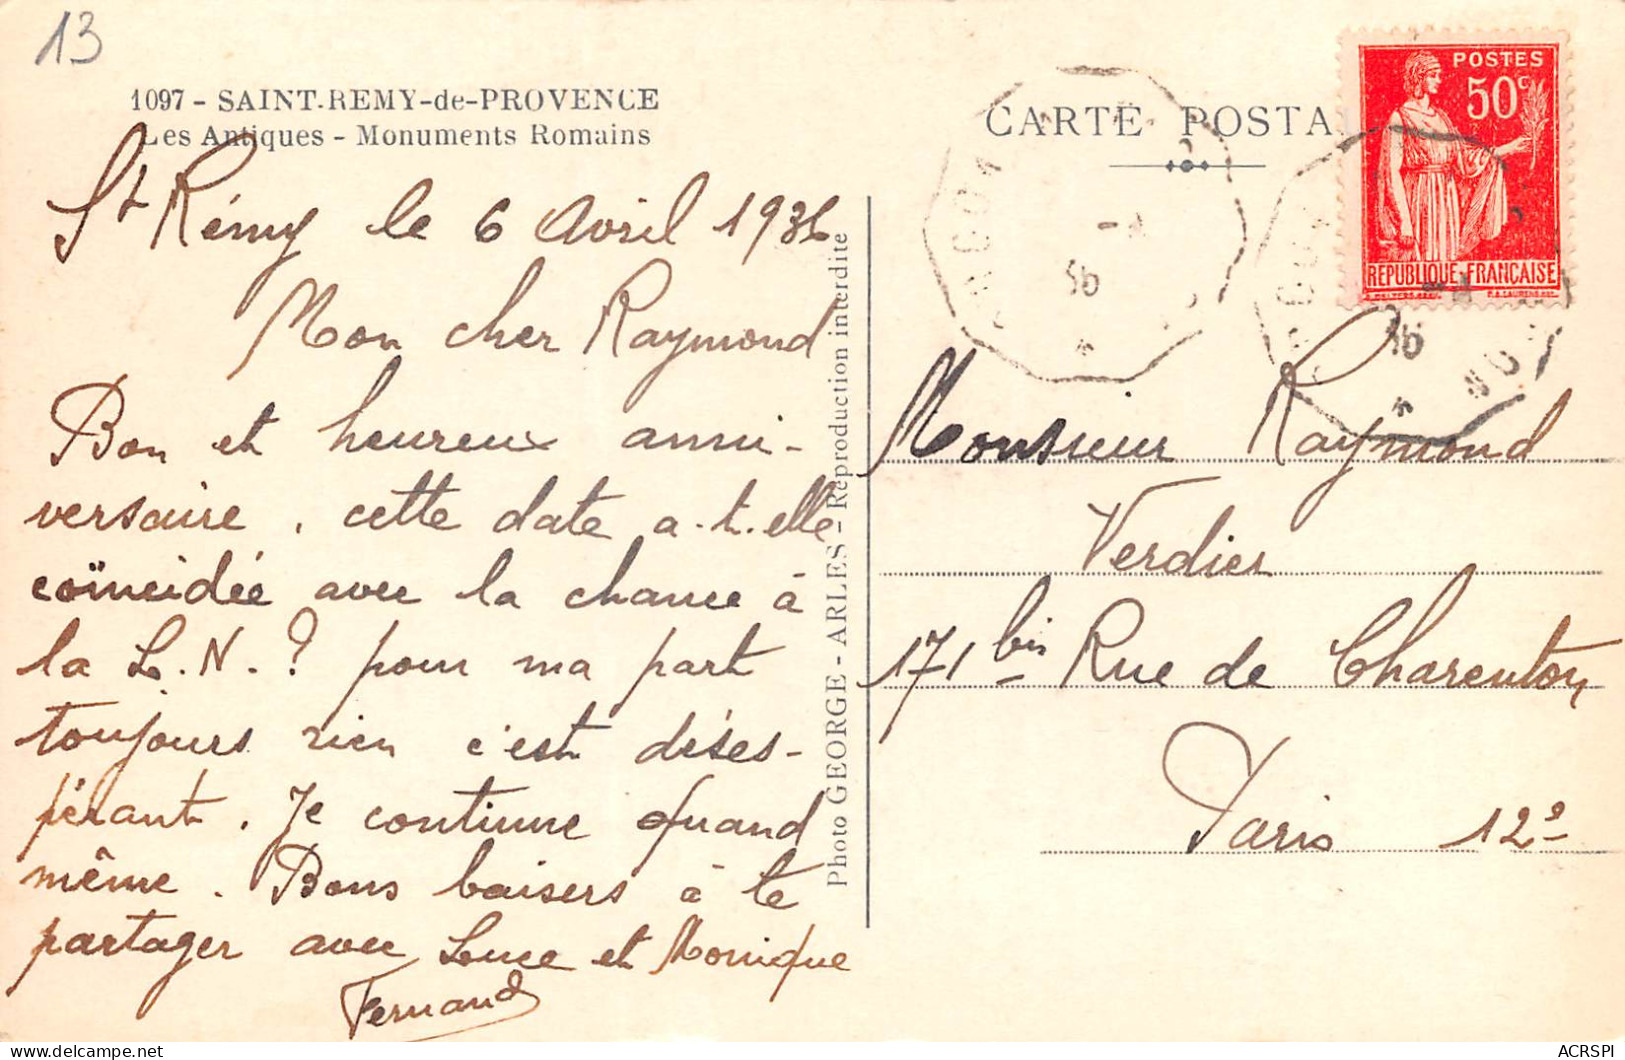 13
1097 - SAINT-REMY-de-PROVENCE
Les Antiques - Monuments Romains
St Rémy le 6 Avril 1936
Mon cher Raymond
Bon et heureux anni-
versaire, cette date a-t-elle
coïncidée avec la chance à
la L.N. ? pour ma part
toujours rien c'est déses-
pérant. Je continue quand
même. Bons baisers à te
partager avec Luce et Monique
Fernand
Photo GEORGE - ARLES - Reproduction interdite
CARTE POSTA
POSTES
50c
REPUBLIQUE FRANÇAISE
36
36
Monsieur Raymond
Verdier
171 bis Rue de Charenton
Paris 12e
ACRSPI